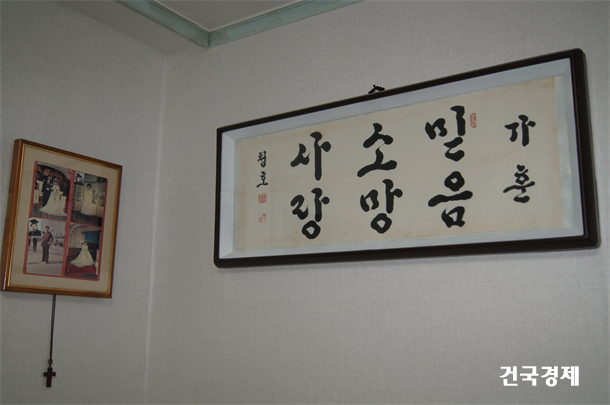 가훈
믿음
소망
사랑
건국경제